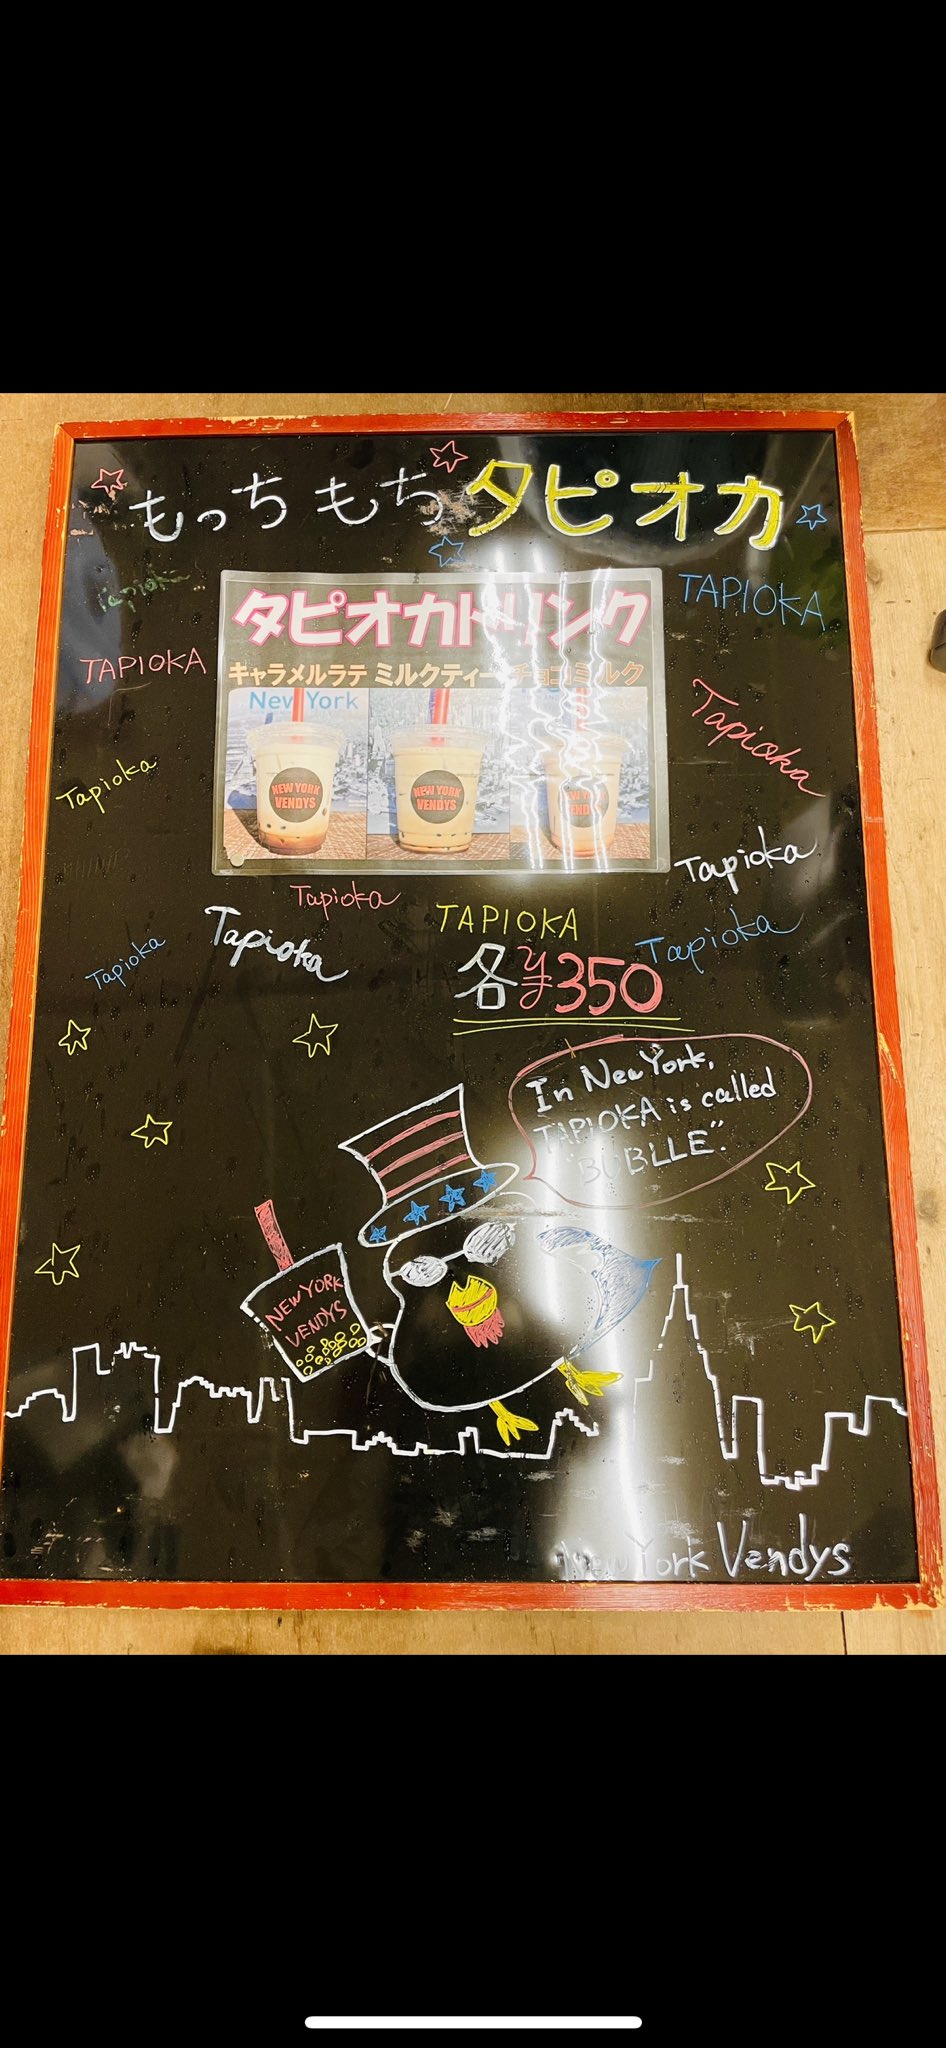 もっちもちタピオカ
Tapioka
TAPIOKA
タピオカドリンク
TAPIOKA
キャラメルラテ ミルクティー チョコミルク
New York
NEW YORK
VENDYS
NEW YORK
VENDYS
Tapioka
Tapioka
Tapioka
Tapioka
TAPIOKA
Tapioka
Tapioka
Tapioka
各¥350
In New York,
TAPIOKA is called
"BUBLLE".
NEW YORK
VENDYS
New York Vendys